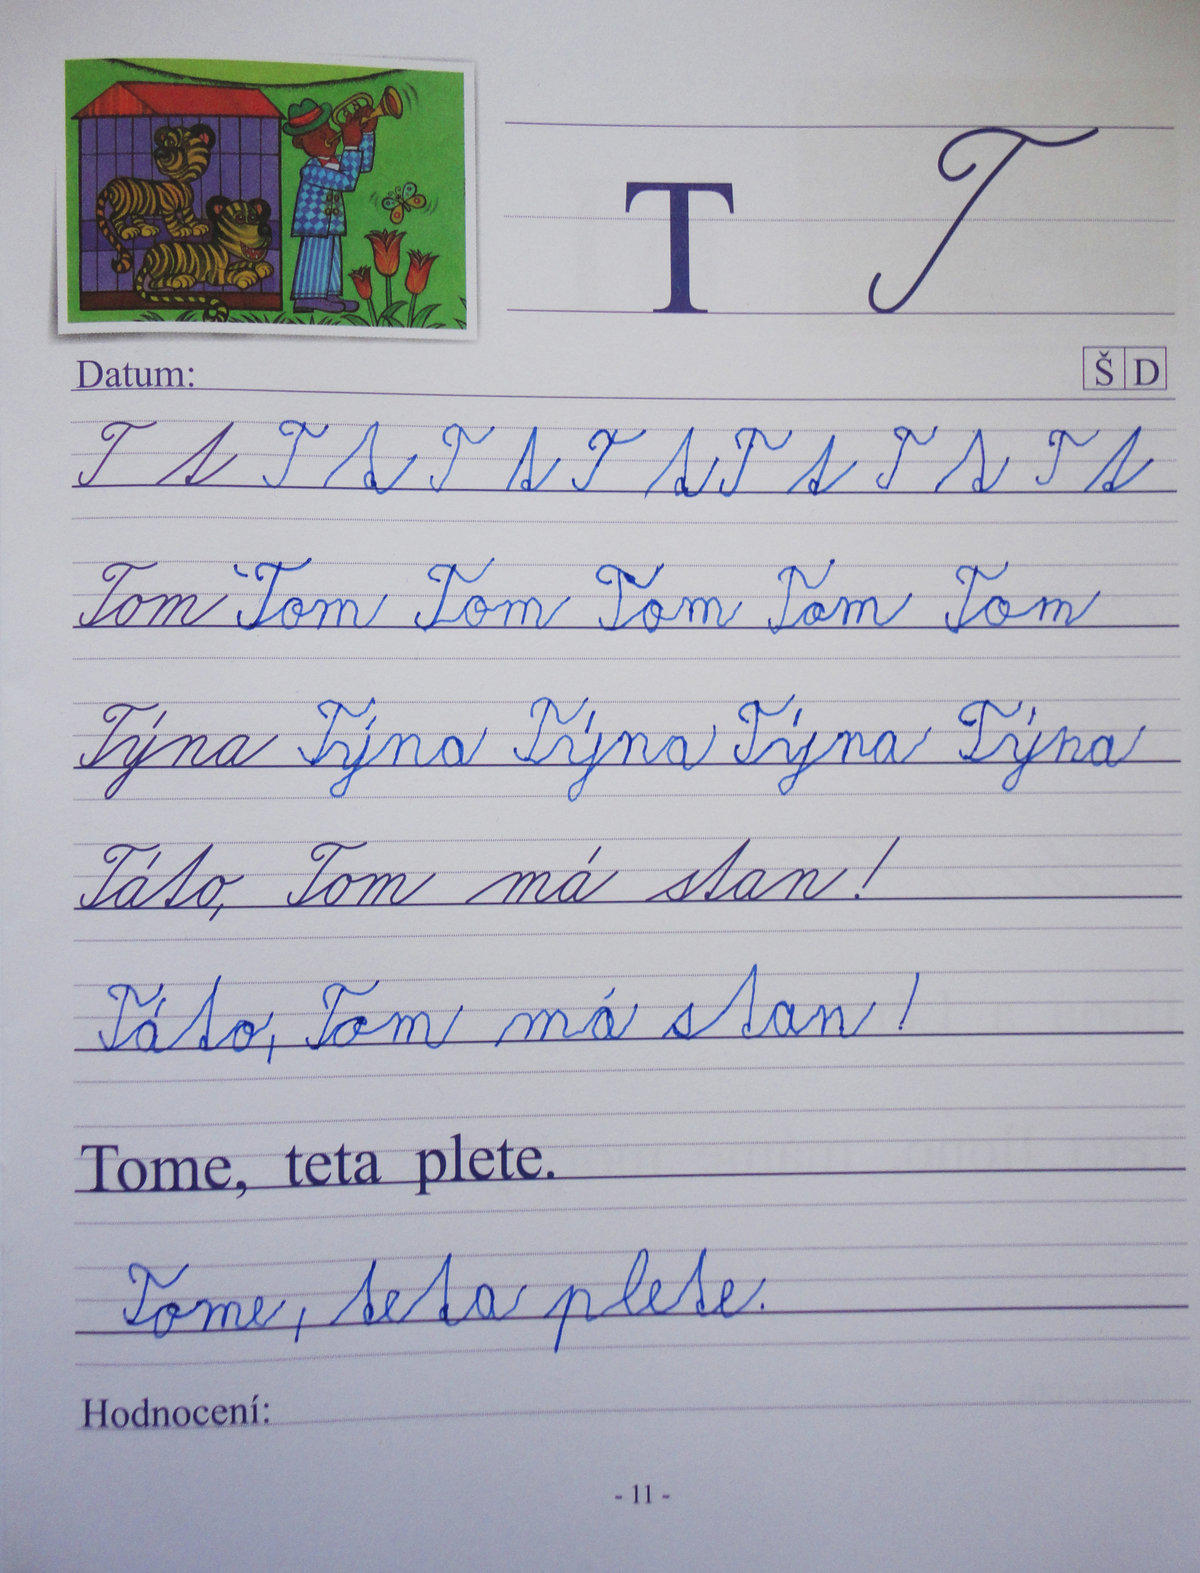 T T
Datum: Š D
T t T t T t T t T t T t T t
Tom Tom Tom Tom Tom Tom
Týna Týna Týna Týna Týna
Táto, Tom má stan!
Táto, Tom má stan!
Tome, teta plete.
Tome, teta plete.
Hodnocení:
- 11 -